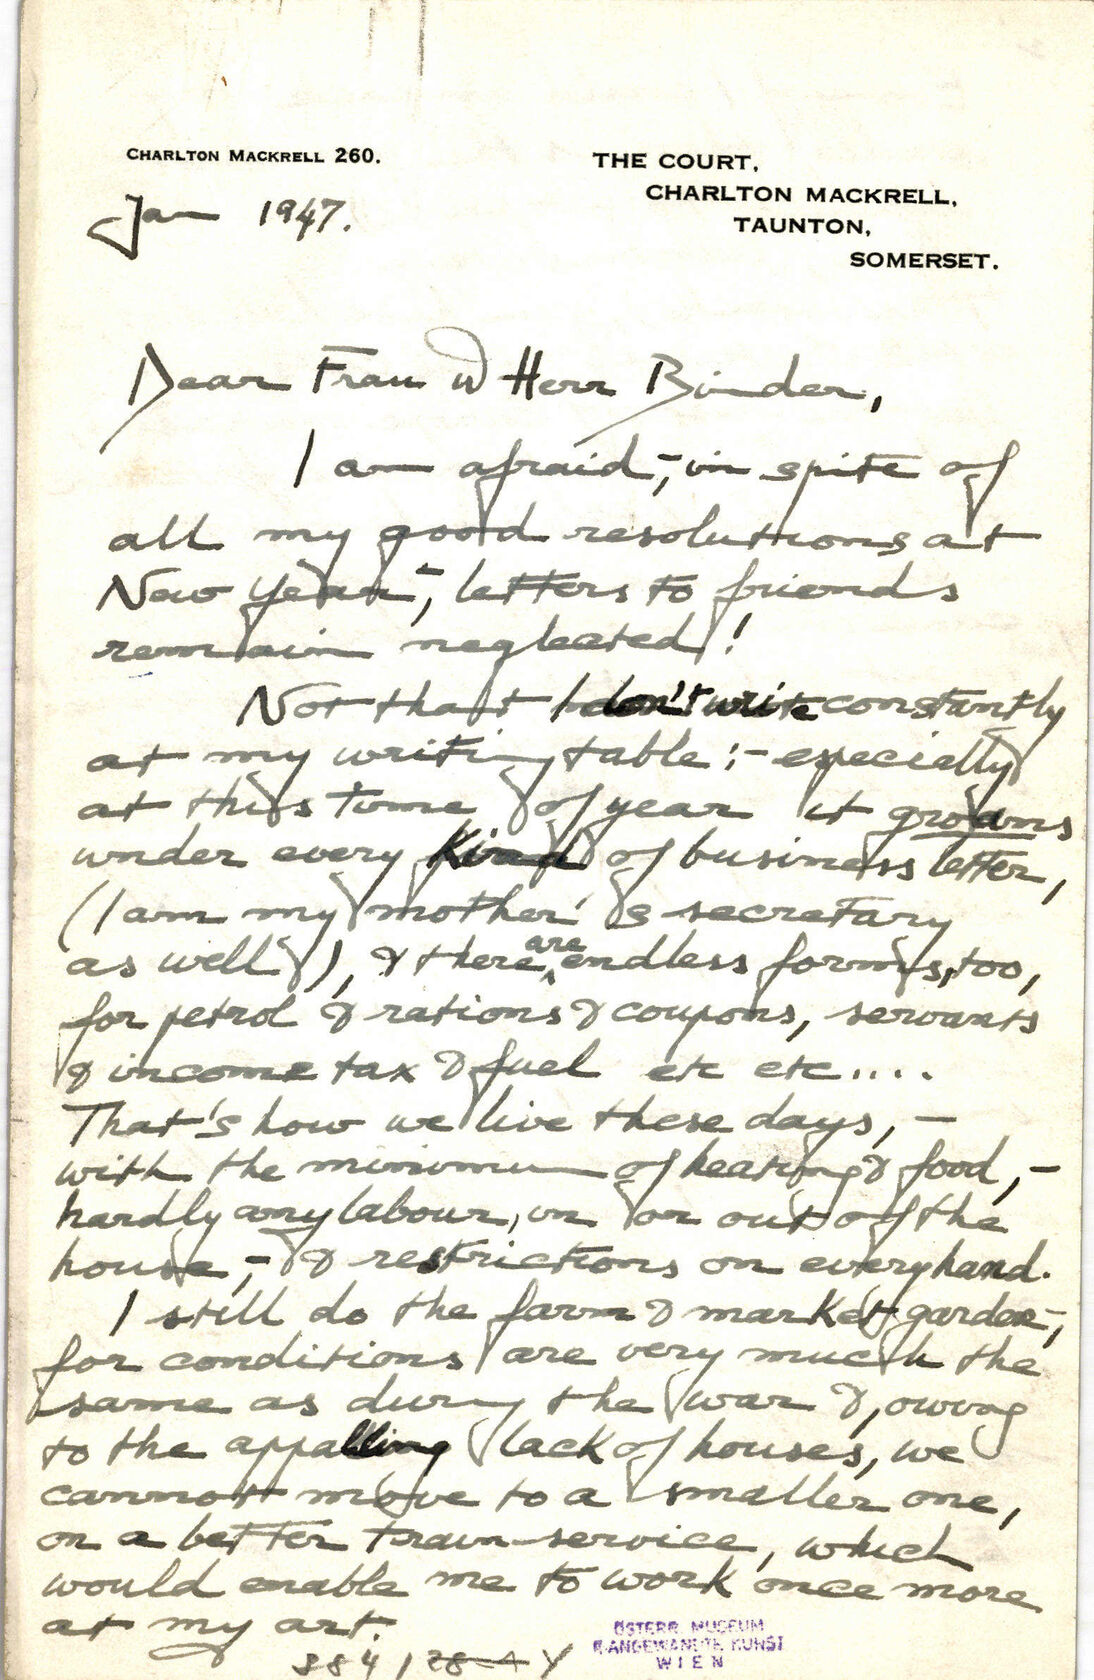 CHARLTON MACKRELL 260.
THE COURT,
CHARLTON MACKRELL,
TAUNTON,
SOMERSET.
Jan 1947.
Dear Frau & Herr Binder,
I am afraid,- in spite of
all my good resolutions at
New Year-, letters to friends
remain neglected!
Not that I don't write constantly
at my writing table:- especially
at this time of year it groans
under every kind of business letter,
(I am my mother's secretary
as well), & there are endless forms, too,
for petrol & rations & coupons, servants
& income tax & fuel etc etc....
That's how we live these days,-
with the minimum of heating & food,-
hardly any labour, in or out of the
house,- & restrictions on every hand.
I still do the farm & market garden-,
for conditions are very much the
same as during the war &, owing
to the appalling lack of houses, we
cannot move to a smaller one,
on a better train-service, which
would enable me to work once more
at my art.
ÖSTERR. MUSEUM
F. ANGEWANDTE KUNST
WIEN